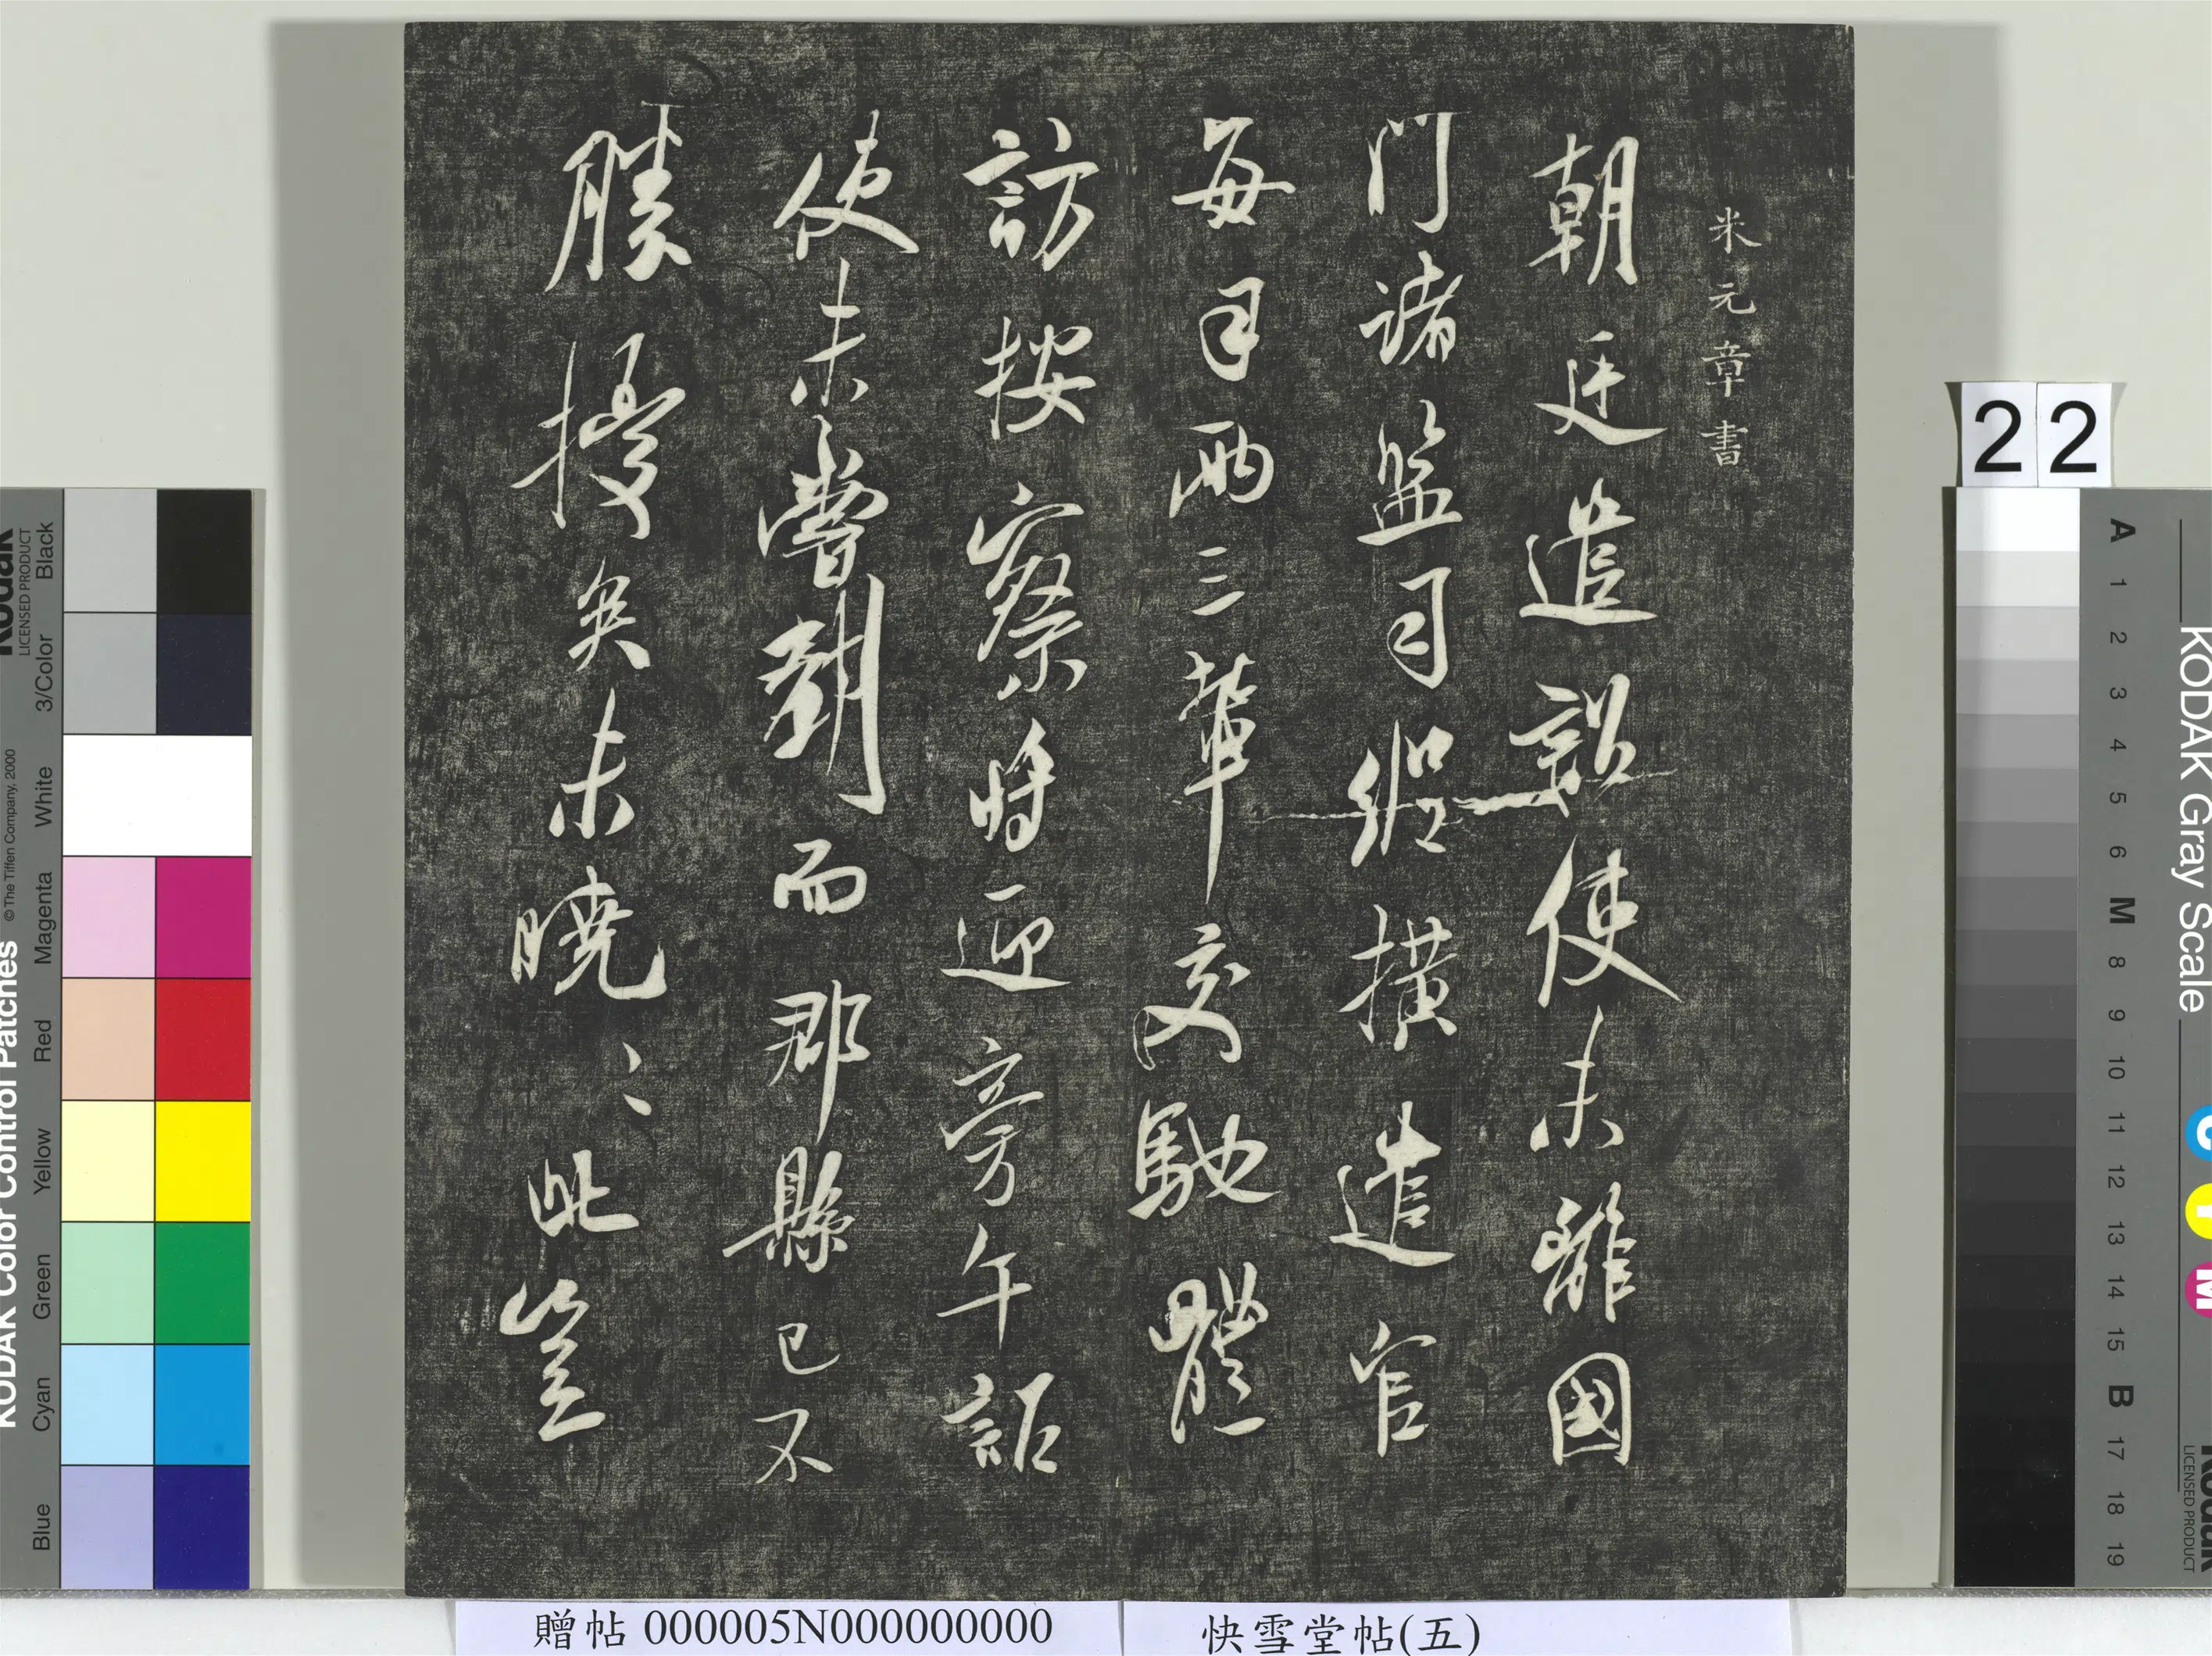 米元章書
朝廷遣詔使未離國
門諸監司縱橫遣官
每司兩三輩交馳體
訪按察將迎旁午詔
使未嘗到而郡縣已不
勝擾矣未曉〻此豈
22
贈帖 000005N000000000
快雪堂帖(五)
KODAK Color Control Patches
© The Tiffen Company, 2000
Kodak
LICENSED PRODUCT
Blue
Cyan
Green
Yellow
Red
Magenta
White
3/Color
Black
KODAK Gray Scale
C
Y
M
Kodak
LICENSED PRODUCT
A 1 2 3 4 5 6 M 8 9 10 11 12 13 14 15 B 17 18 19